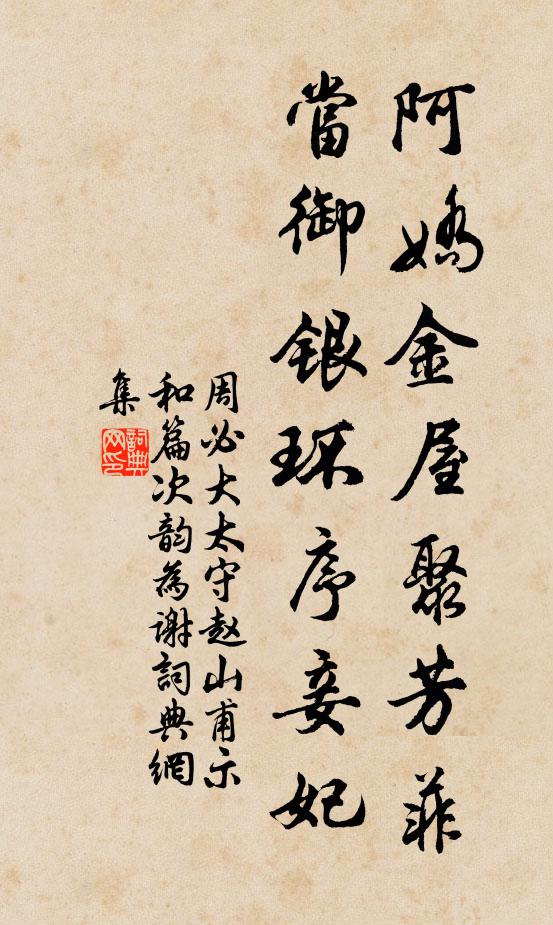 阿嬌金屋聚芳菲
當御銀環序妾妃
周必大太守赵山甫示
和篇次韵為謝詞典網
集
詞典
网印